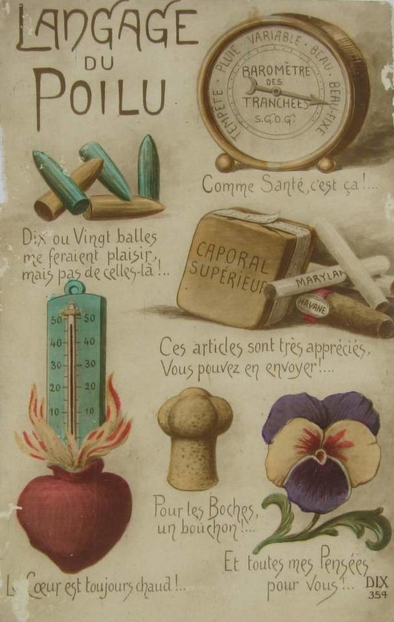 LANGAGE
DU
POILU
TEMPÊTE · PLUIE VARIABLE · BEAU · BEAU-FIXE
BAROMÈTRE
DES
TRANCHÉES
S.G.D.G.
Comme Santé, c'est ça !...
Dix ou Vingt balles
me feraient plaisir,
mais pas de celles-là !..
CAPORAL
SUPÉRIEUR
MARYLAN
HAVANE
Ces articles sont très appréciés,
Vous pouvez en envoyer !....
50 50
40 40
30 30
20 20
10 10
Pour les Boches,
un bouchon !...
Et toutes mes Pensées
pour Vous !..
Le Cœur est toujours chaud !..
DIX
354